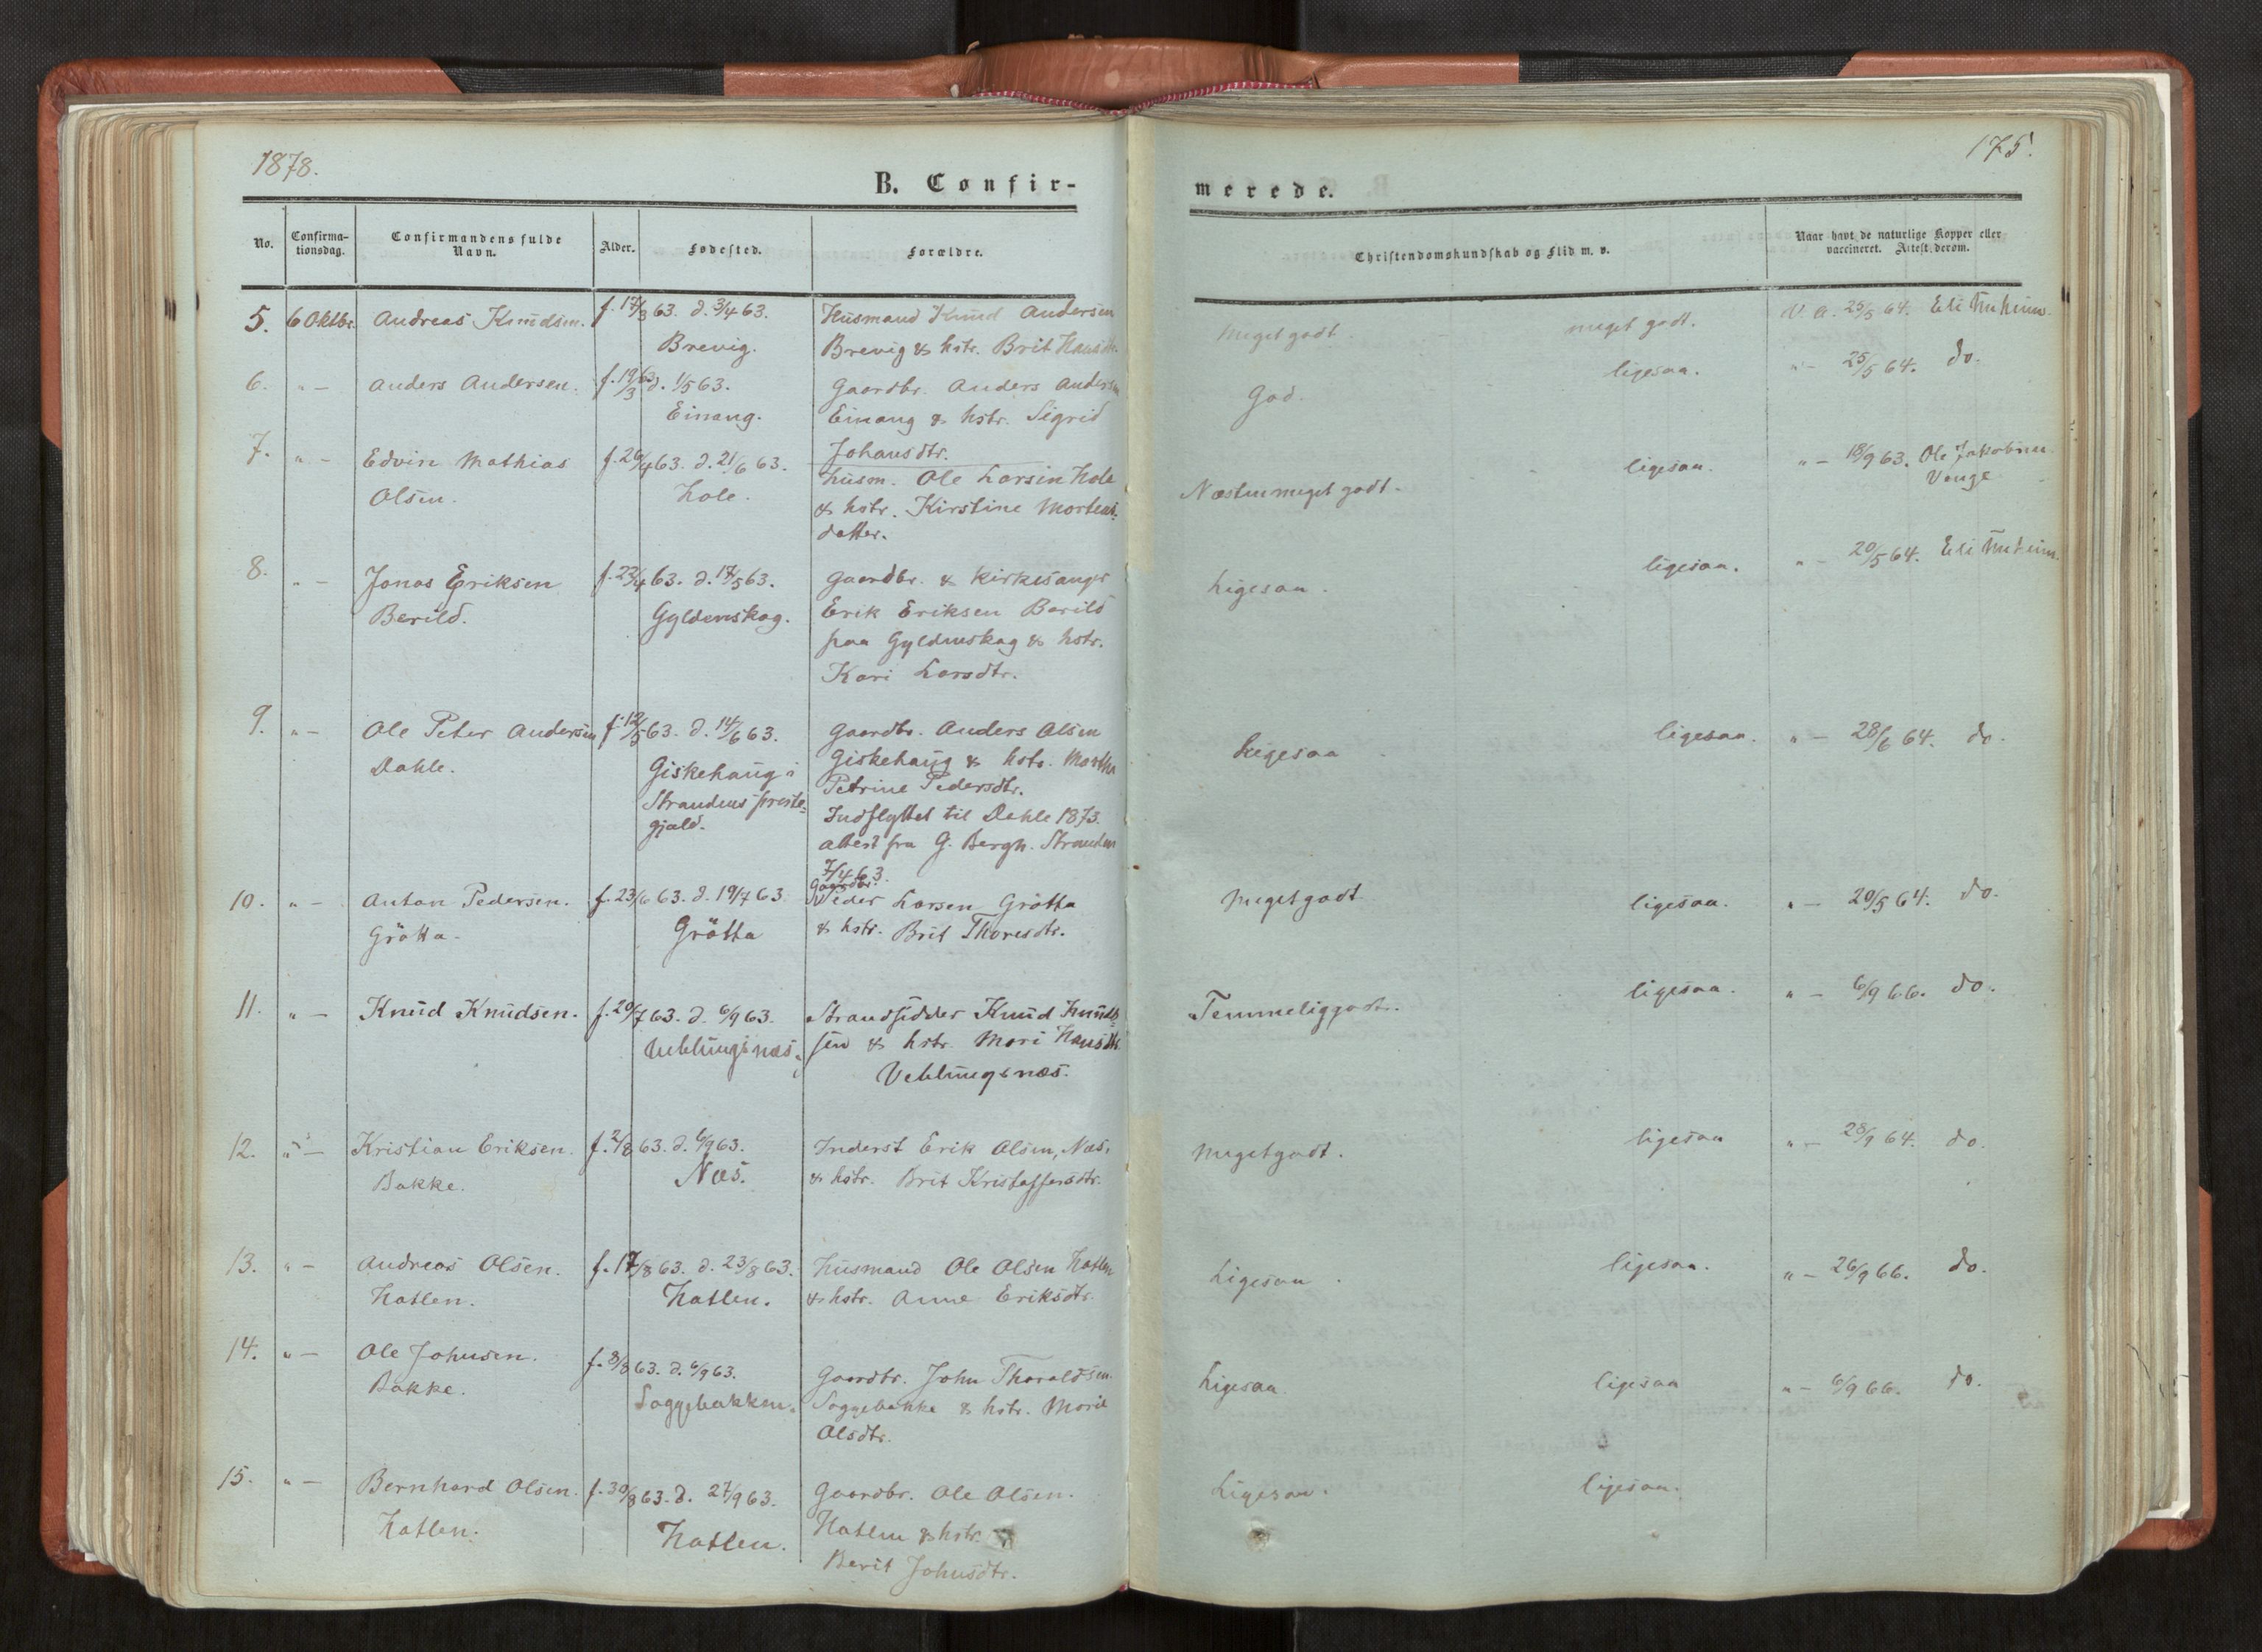 1878.
175.
B. Confir-
merede.
No.
Confirma-
tionsdag.
Confirmandens fulde
Navn.
Alder.
Fødested.
Forældre.
Christendomskundskab og Flid m. v.
Naar havt de naturlige Kopper eller
vaccineret. Attest derom.
5. 6 Oktbr. Andreas Knudsen. f. 17/3 63. d. 3/4 63. Husmand Knud Andersen
Brevig. Brevig & hstr. Brit Hansdtr.
Meget godt. meget godt. V. A. 25/5 64.
6. " — Anders Andersen. f. 19/3 63 d. 1/5 63. Gaardbr. Anders Andersen
Einang. Einang & hstr. Sigrid
Johansdtr.
God. ligesaa. " — 25/5 64. do.
7. " — Edvin Mathias f. 26/4 63. d. 21/6 63. Husm. Ole Larsen Hole
Olsen. Hole. & hstr. Kirstine Mortens-
datter.
Næsten meget godt. ligesaa. " — 18/9 63. Ole Jakobsen
Venge
8. " — Jonas Eriksen f. 23/4 63. d. 17/5 63. Gaardbr. & Kirkesanger
Berild. Gyldenskog. Erik Eriksen Berild
paa Gyldenskog & hstr.
Kari Larsdtr.
Ligesaa. ligesaa. " — 20/5 64.
9. " — Ole Peter Andersen f. 12/5 63. d. 14/6 63. Gaardbr. Anders Olsen
Dahle. Giskehaug i Giskehaug & hstr. Martha
Strandens præste- Petrine Pedersdtr.
gjæld. Indflyttet til Dahle 1873.
Attest fra G. Bergh. Stranden
7/4 63.
Ligesaa ligesaa. " — 28/6 64. do.
10. " — Anton Pedersen. f. 23/6 63. d. 19/7 63. Gaardbr. Peder Larsen Grötta
Grötta. Grötta & hstr. Brit Thoresdtr.
Meget godt ligesaa. " — 20/5 64. do.
11. " — Knud Knudsen. f. 20/7 63. d. 6/9 63. Strandsidder Knud Knud-
Veblungsnæs. sen & hstr. Mari Hansdtr.
Veblungsnæs.
Temmelig godt. ligesaa. " — 6/9 66. do.
12. " — Kristian Eriksen. f. 2/8 63. d. 6/9 63. Inderst Erik Olsen, Næs,
Bakke. Næs. & hstr. Brit Kristoffersdtr.
Meget godt. ligesaa " — 28/9 64. do.
13. " — Andreas Olsen. f. 17/8 63. d. 23/8 63. Husmand Ole Olsen Hatlen
Hatlen. Hatlen. & hstr. Anne Eriksdtr.
Ligesaa. ligesaa. " — 26/9 66. do.
14. " — Ole Johnsen. f. 8/8 63. d. 6/9 63. Gaardbr. John Thoraldsen
Bakke. Soggebakken. Soggebakke & hstr. Marit
Olsdtr.
Ligesaa. ligesaa " — 6/9 66. do.
15. " — Bernhard Olsen. f. 30/8 63. d. 27/9 63. Gaardbr. Ole Olsen.
Hatlen. Hatlen. Hatlen & hstr.
Berit Johnsdtr.
Ligesaa. ligesaa.